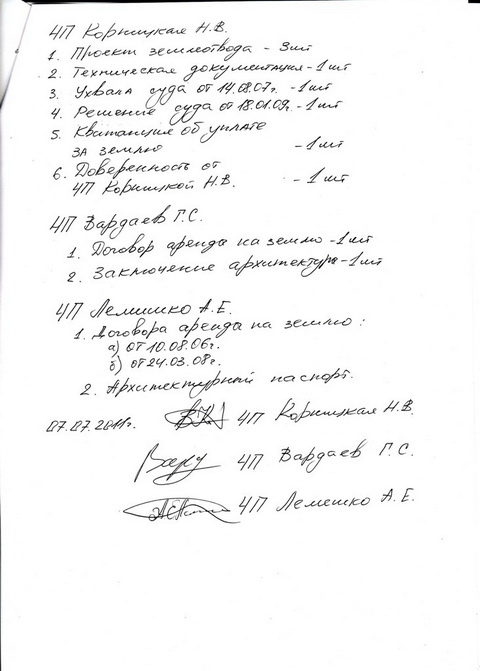 ЧП Корницкая Н.В.
1. Проект землеотвода - 3шт
2. Техническая документация - 1 шт
3. Ухвала суда от 14.08.07г. - 1 шт
4. Решение суда от 18.01.09г. - 1 шт
5. Квитанция об уплате
за землю - 1 шт
6. Доверенность от
ЧП Корницкой Н.В. - 1 шт
ЧП Вардаев Г.С.
1. Договор аренда на землю - 1 шт
2. Заключение архитектуры - 1 шт
ЧП Лемишко А.Е.
1. Договора аренда на землю:
а) от 10.08.06г.
б) от 24.03.08г.
2. Архитектурный паспорт.
07.07.2011г. ЧП Корницкая Н.В.
ЧП Вардаев Г.С.
ЧП Лемишко А.Е.